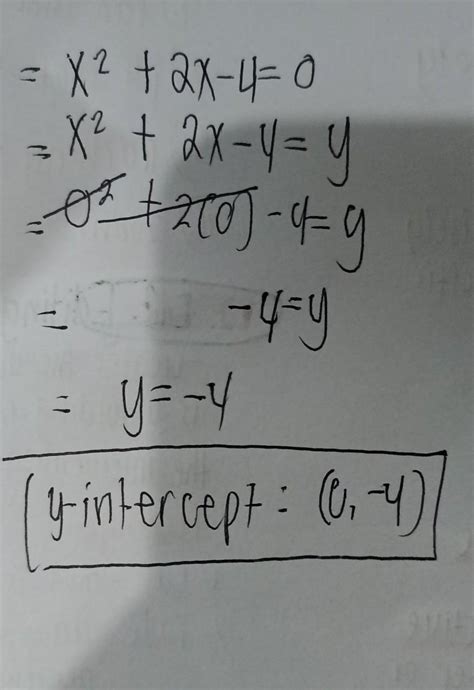 = x² + 2x - 4 = 0
= x² + 2x - y = y
= 0² + 2(0) - 4 = y
= -4 = y
= y = -4
y-intercept: (0, -4)